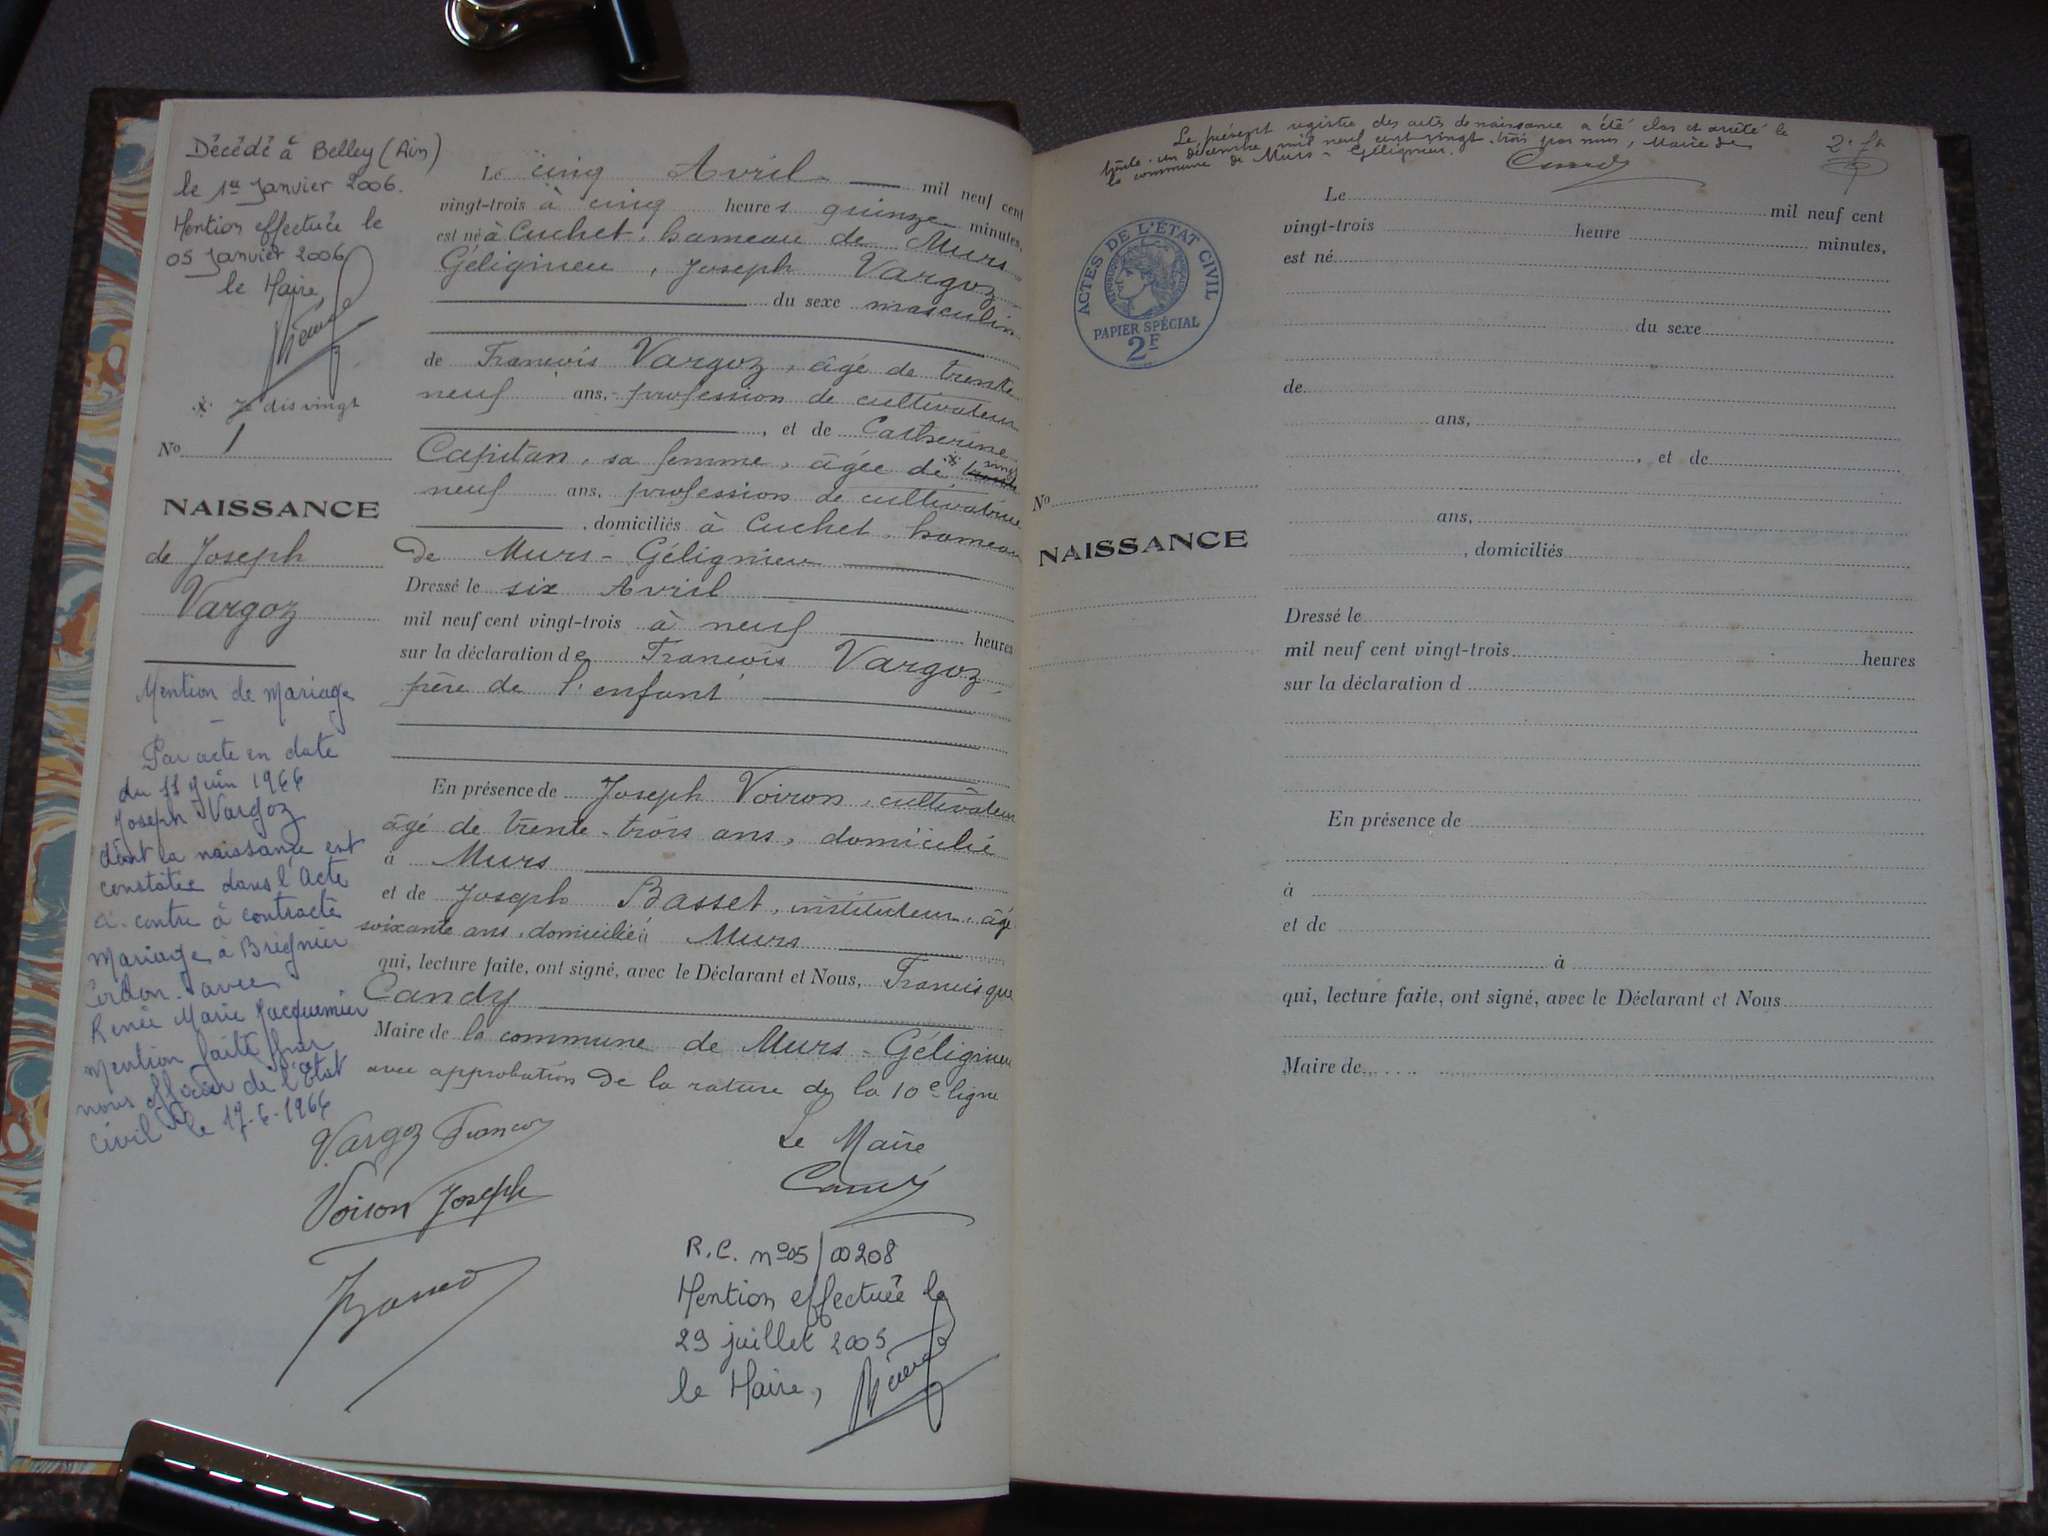 Décédé à Belley (Ain)
le 1er Janvier 2006.
Mention effectuée le
05 Janvier 2006
le Maire,
* Je dis vingt
No 1
NAISSANCE
de Joseph
Vargoz
Mention de mariage
Par acte en date
du 11 juin 1966
Joseph Vargoz
dont la naissance est
constatée dans l'Acte
ci-contre à contracté
mariage à Brégnier
Cordon avec
Renée Marie Jacquemier
Mention faite par
nous officier de l'état
civil le 17-6-1966
Le cinq Avril mil neuf cent
vingt-trois à cinq heures quinze minutes,
est né à Cuchet, hameau de Murs
Géligneu, Joseph Vargoz
du sexe masculin
de Francois Vargoz, âgé de trente
neuf ans, profession de cultivateur
, et de Catherine
Capitan, sa femme, âgée de * vingt
neuf ans, profession de cultivatrice
, domiciliés à Cuchet, hameau
de Murs-Géligneu
Dressé le six Avril
mil neuf cent vingt-trois à neuf heures
sur la déclaration de Francois Vargoz,
père de l'enfant
En présence de Joseph Voiron, cultivateur
âgé de trente-trois ans, domicilié
à Murs
et de Joseph Basset, instituteur, âgé
soixante ans, domicilié à Murs
qui, lecture faite, ont signé, avec le Déclarant et Nous, Francisque
Candy
Maire de la commune de Murs-Géligneu
avec approbation de la rature de la 10e ligne
Vargoz Francois
Le Maire
Candy
Voiron Joseph
Basset
R.C. n°05/00208
Mention effectuée le
29 juillet 2005
le Maire,
Le présent registre des actes de naissance a été clos et arrêté le
trente-un décembre mil neuf cent vingt-trois par nous, Maire de
la commune de Murs-Géligneu.
Candy
ACTES DE L'ÉTAT CIVIL
PAPIER SPÉCIAL
2F
No
NAISSANCE
Le mil neuf cent
vingt-trois heure minutes,
est né
du sexe
de
ans,
, et de
ans,
, domiciliés
Dressé le
mil neuf cent vingt-trois heures
sur la déclaration d
En présence de
à
et de
à
qui, lecture faite, ont signé, avec le Déclarant et Nous
Maire de